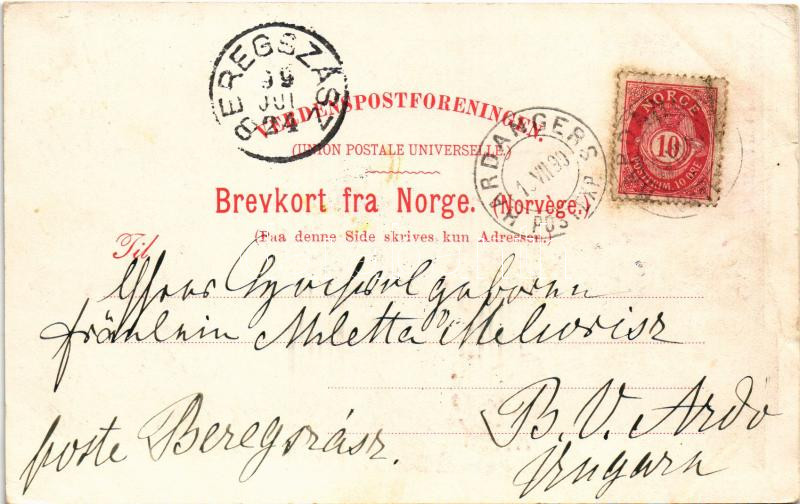 BEREGSZÁSZ
99
JUL
24
VERDENSPOSTFORENINGEN.
(UNION POSTALE UNIVERSELLE.)
Brevkort fra Norge. (Norvège.)
(Faa denne Side skrives kun Adressen.)
HARDANGERS
POSTEXP
NORGE
10
POSTFRIM. 10 ØRE
Til
geboren
fräulein Miletta
B. V. Ardó
poste Beregszász.
Ungarn